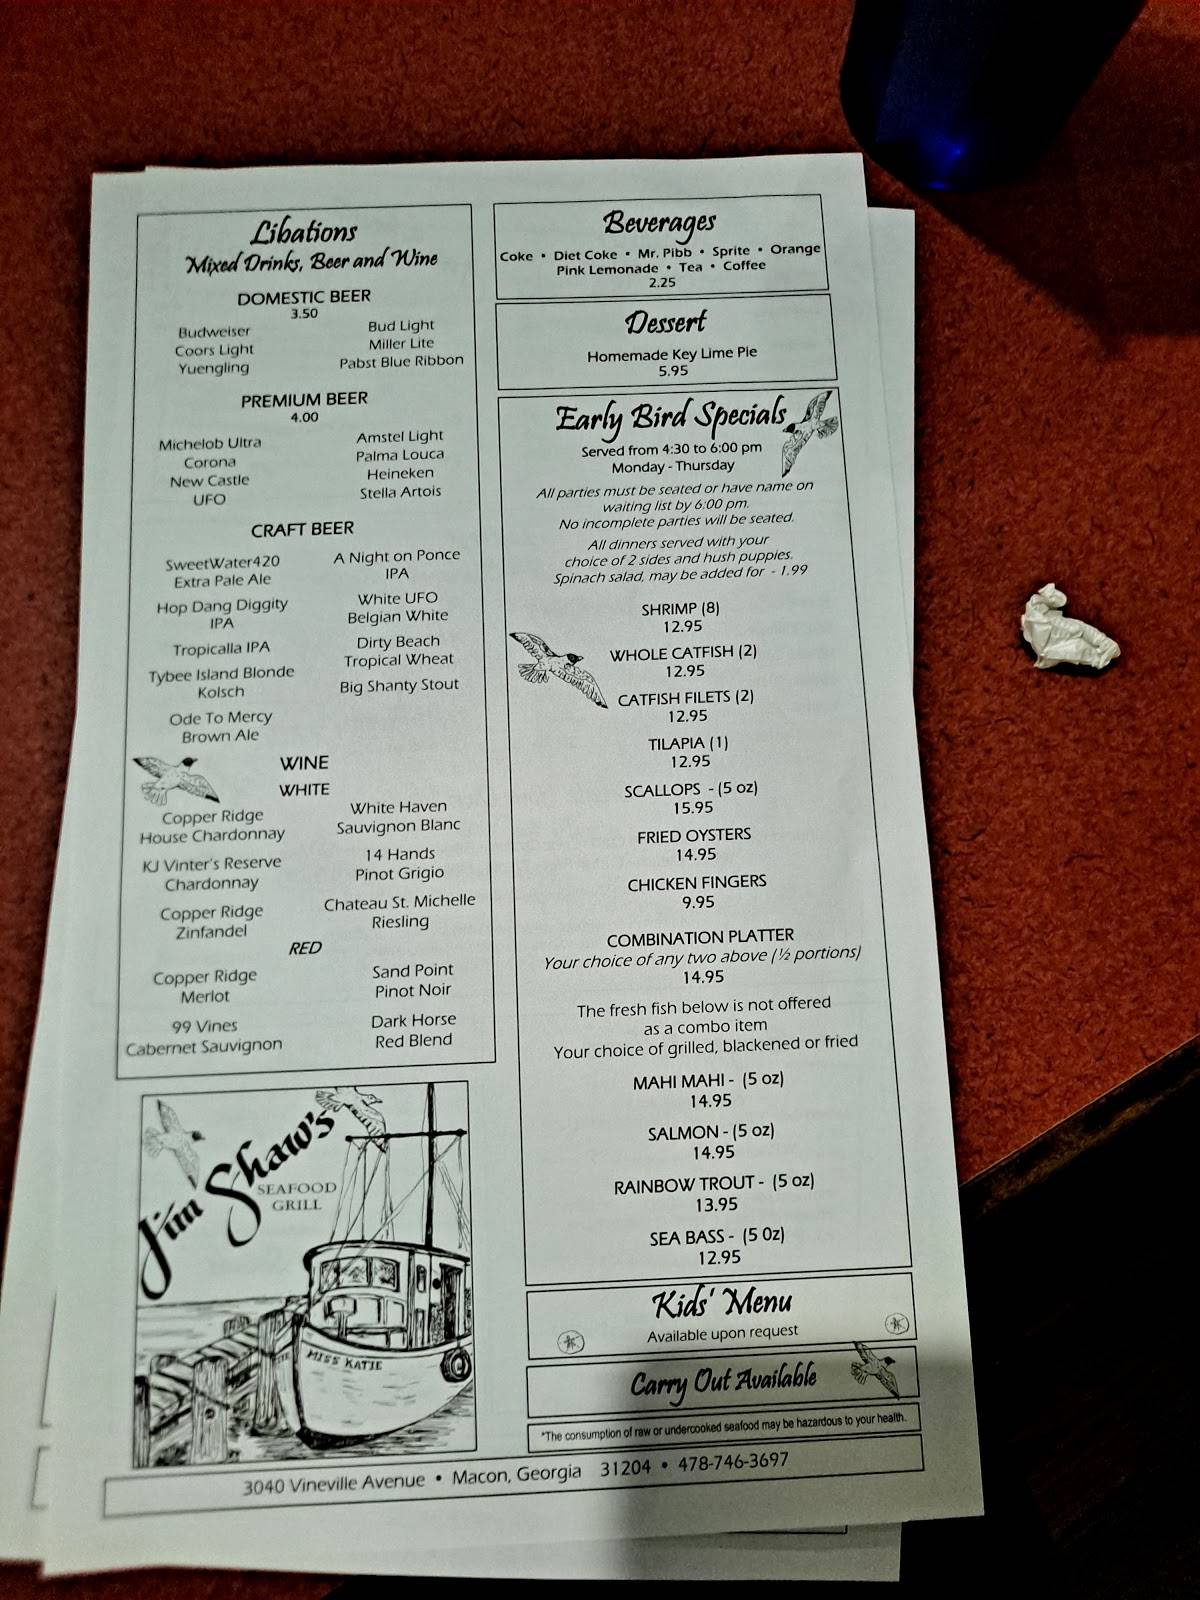 Libations
Mixed Drinks, Beer and Wine
DOMESTIC BEER
3.50
Budweiser
Coors Light
Yuengling
Bud Light
Miller Lite
Pabst Blue Ribbon
PREMIUM BEER
4.00
Michelob Ultra
Corona
New Castle
UFO
Amstel Light
Palma Louca
Heineken
Stella Artois
CRAFT BEER
SweetWater420
Extra Pale Ale
Hop Dang Diggity
IPA
Tropicalla IPA
Tybee Island Blonde
Kolsch
Ode To Mercy
Brown Ale
A Night on Ponce
IPA
White UFO
Belgian White
Dirty Beach
Tropical Wheat
Big Shanty Stout
WINE
WHITE
Copper Ridge
House Chardonnay
KJ Vinter's Reserve
Chardonnay
Copper Ridge
Zinfandel
White Haven
Sauvignon Blanc
14 Hands
Pinot Grigio
Chateau St. Michelle
Riesling
RED
Copper Ridge
Merlot
99 Vines
Cabernet Sauvignon
Sand Point
Pinot Noir
Dark Horse
Red Blend
Jim Shaw's
SEAFOOD
GRILL
MISS KATIE
Beverages
Coke • Diet Coke • Mr. Pibb • Sprite • Orange
Pink Lemonade • Tea • Coffee
2.25
Dessert
Homemade Key Lime Pie
5.95
Early Bird Specials
Served from 4:30 to 6:00 pm
Monday - Thursday
All parties must be seated or have name on
waiting list by 6:00 pm.
No incomplete parties will be seated.
All dinners served with your
choice of 2 sides and hush puppies.
Spinach salad, may be added for - 1.99
SHRIMP (8)
12.95
WHOLE CATFISH (2)
12.95
CATFISH FILETS (2)
12.95
TILAPIA (1)
12.95
SCALLOPS - (5 oz)
15.95
FRIED OYSTERS
14.95
CHICKEN FINGERS
9.95
COMBINATION PLATTER
Your choice of any two above (½ portions)
14.95
The fresh fish below is not offered
as a combo item
Your choice of grilled, blackened or fried
MAHI MAHI - (5 oz)
14.95
SALMON - (5 oz)
14.95
RAINBOW TROUT - (5 oz)
13.95
SEA BASS - (5 0z)
12.95
Kids' Menu
Available upon request
Carry Out Available
*The consumption of raw or undercooked seafood may be hazardous to your health.
3040 Vineville Avenue • Macon, Georgia 31204 • 478-746-3697